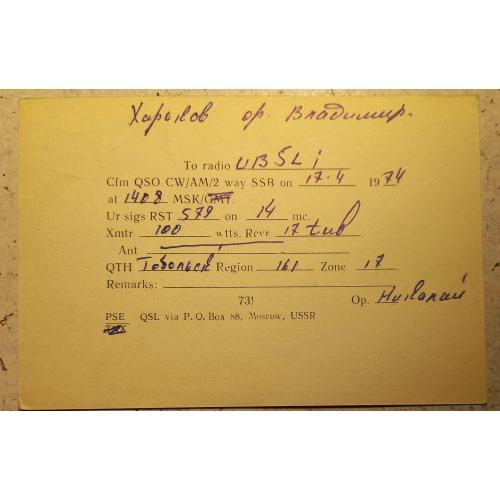 Харьков ор. Владимир.
To radio UB5LI
Cfm QSO CW/AM/2 way SSB on 17.4 1974
at 1408 MSK/GMT.
Ur sigs RST 579 on 14 mc.
Xmtr 100 wtts. Rcvr 17 tub
Ant
QTH Тобольск Region 161 Zone 17
Remarks:
73! Op. Николай
PSE QSL via P. O. Box 88, Moscow, USSR
TNX